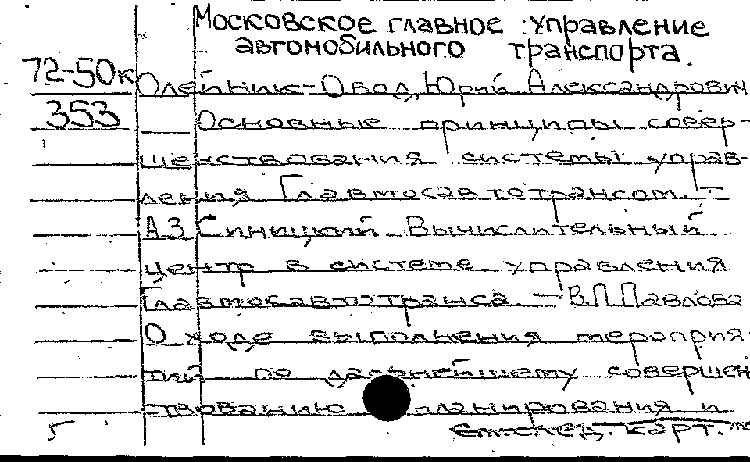 Московское главное управление
автомобильного транспорта.
72-50к Олейник-Овод, Юрий Александрович
353 Основные принципы совер-
шенствования системы управ-
ления Главмосавтотрансом. –
А.З Синицкий Вычислительный
центр в системе управления
Главмосавтотранса. – В.П. Павлова
О ходе выполнения мероприя-
тий по дальнейшему совершен
ствованию планирования и
5 см.след. карт.